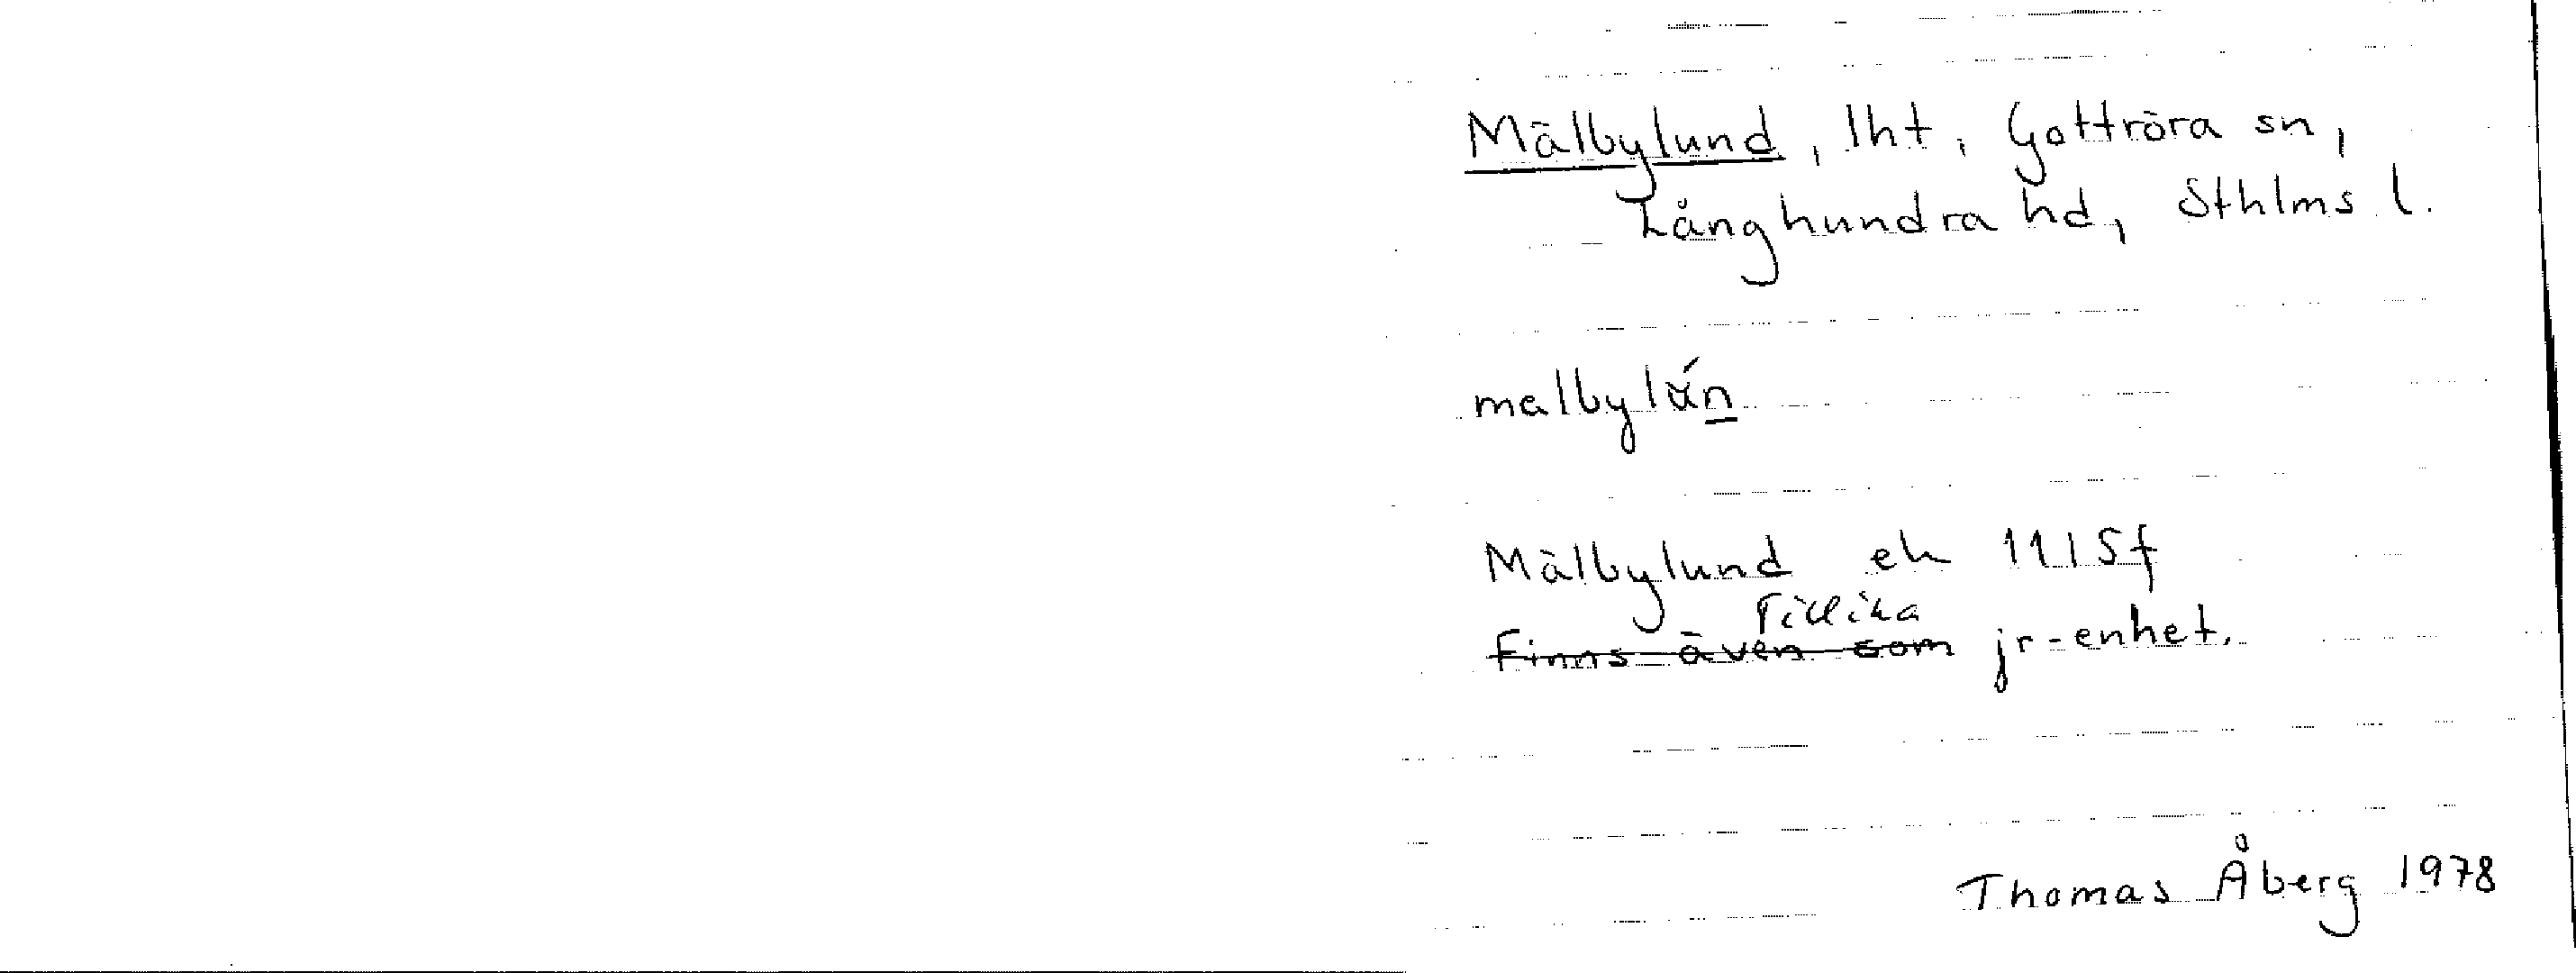 Mälbylund, lht, Gottröra sn,
Långhundra hd, Sthlms l.
melbylún
Mälbylund ek 11I5f
Tillika
Finns även som jr-enhet.
Thomas Åberg 1978